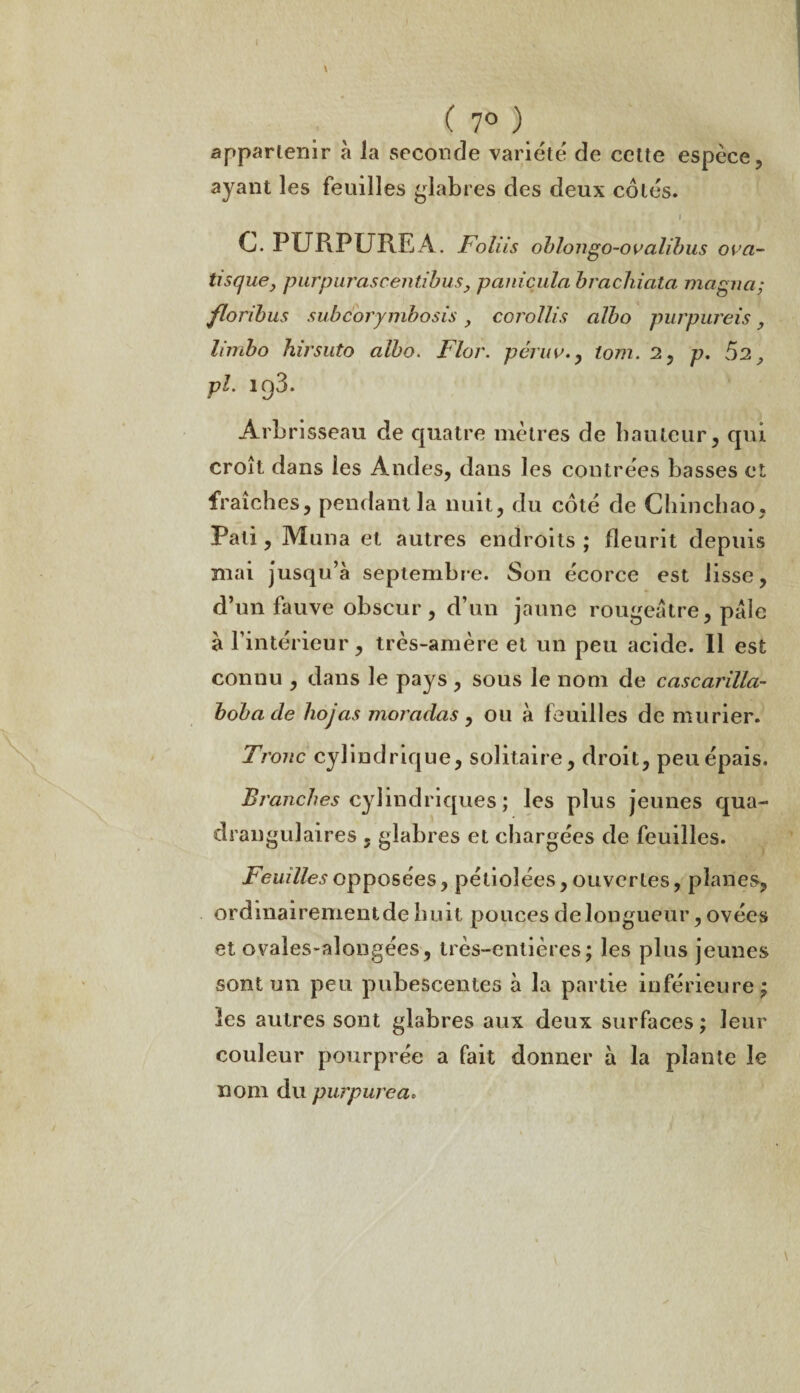 ( 70 )
appartenir à la seconde variété de cette espèce,
ayant les feuilles glabres des deux côtés.
C. PURPUREA. Foliis oblongo-ovalibus ova-
tisque, purpurascentibus, panicula brachiata magna;
floribus subcorymbosis, corollis albo purpureis,
limbo hirsuto albo. Flor. péruv., tom. 2, p. 52,
pl. 193.
Arbrisseau de quatre mètres de hauteur, qui
croît dans les Andes, dans les contrées basses et
fraîches, pendant la nuit, du côté de Chinchao,
Pati, Muna et autres endroits ; fleurit depuis
mai jusqu'à septembre. Son écorce est lisse,
d'un fauve obscur, d'un jaune rougeâtre, pâle
à l'intérieur, très-amère et un peu acide. Il est
connu, dans le pays, sous le nom de cascarilla-
boba de hojas moradas, ou à feuilles de murier.
Tronc cylindrique, solitaire, droit, peu épais.
Branches cylindriques ; les plus jeunes qua-
drangulaires, glabres et chargées de feuilles.
Feuilles opposées, pétiolées, ouvertes, planes,
ordinairement de huit pouces de longueur, ovées
et ovales-alongées, très-entières ; les plus jeunes
sont un peu pubescentes à la partie inférieure ;
les autres sont glabres aux deux surfaces ; leur
couleur pourprée a fait donner à la plante le
nom du purpurea.